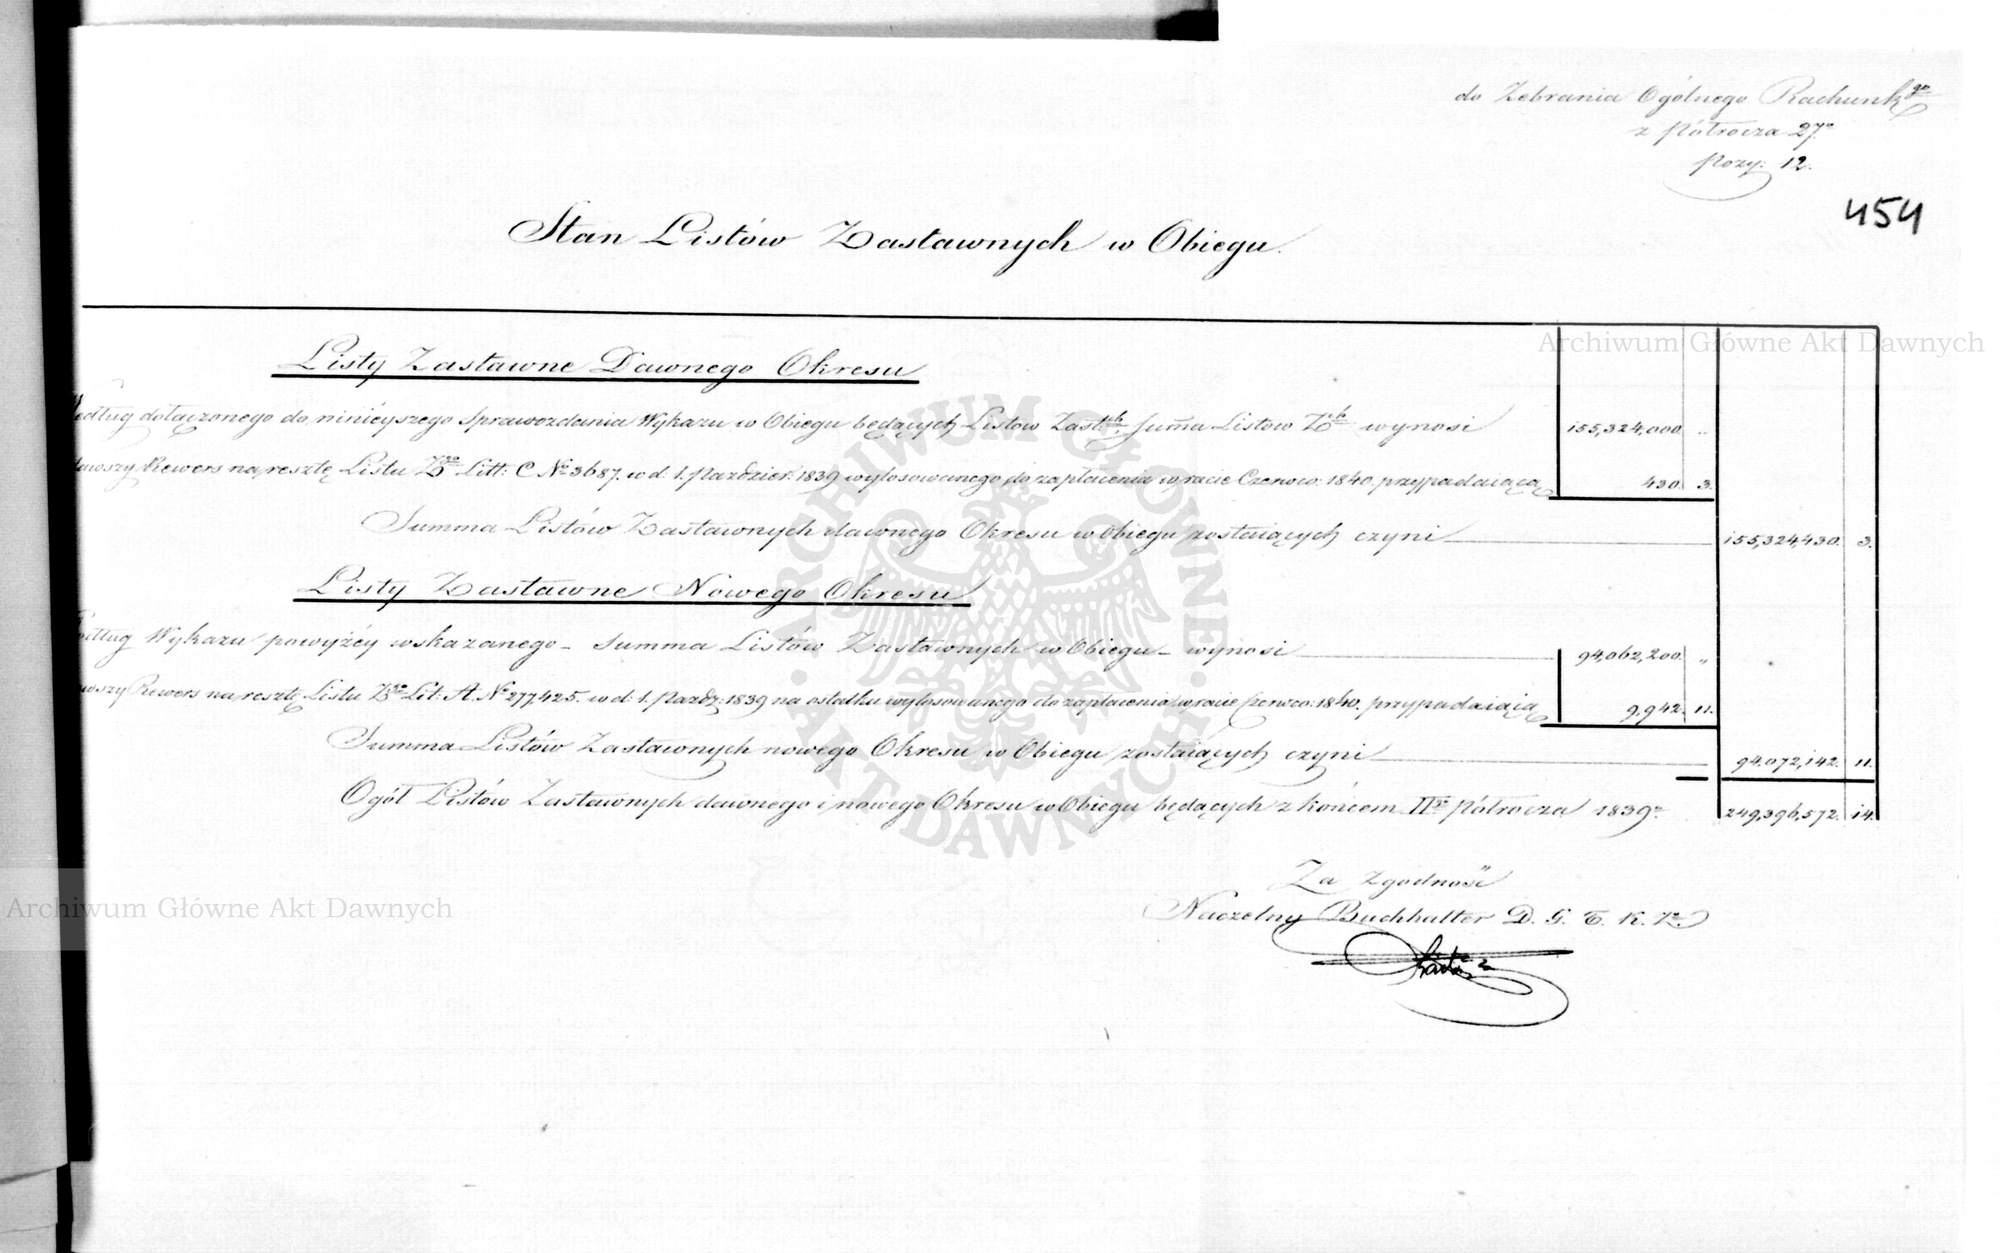 do Zebrania Ogólnego Rachunkgo
z Półrocza 27o
pozy: 12.
454
Stan Listów Zastawnych w Obiegu.
Archiwum Główne Akt Dawnych
Listy Zastawne Dawnego Okresu
Według dołączonego do ninieyszego Sprawozdania Wykazu w Obiegu będących Listów Zastch Summa Listów Zch wynosi 155,324,000 „
Rewers na resztę Listu Zgo Litt: C No 3687. w d. 1. Paździer: 1839 wylosowanego do zapłacenia w racie Czerwco: 1840. przypadaiącą 430. 3.
Summa Listów Zastawnych dawnego Okresu w Obiegu zostaiących czyni 155,324,430. 3.
Listy Zastawne Nowego Okresu
Według Wykazu powyżéy wskazanego - Summa Listów Zastawnych w Obiegu - wynosi 94,062,200. „
Rewers na resztę Listu Zgo Lit: A. No 277,425. w d. 1. Paźdz: 1839 na ostatku wylosowanego do zapłacenia w racie Czerwco: 1840. przypadaiącą 9,942. 11.
Summa Listów Zastawnych nowego Okresu w Obiegu zostaiących czyni 94,072,142. 11.
Ogół Listów Zastawnych dawnego i nowego Okresu w Obiegu będących z końcem IIgo Półrocza 1839r. 249,396,572. 14.
Za Zgodność
Naczelny Buchhalter D. G. T. K. Zo
Archiwum Główne Akt Dawnych
ARCHIWUM GŁÓWNE AKT DAWNYCH